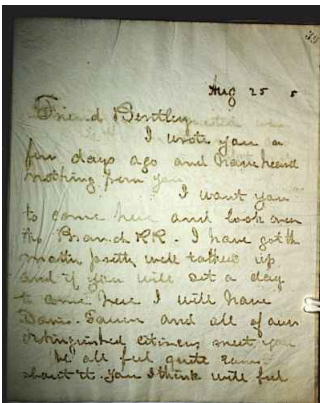 39
Aug 25 5
Friend Bentley
I wrote you a
few days ago and have heard
nothing from you
I want you
to come here and look over
the Branch RR. I have got the
matter pretty well talked up
and if you will set a day
to come here I will have
and all of our
distinguished citizens meet you
We all feel quite
about it. You I think will feel